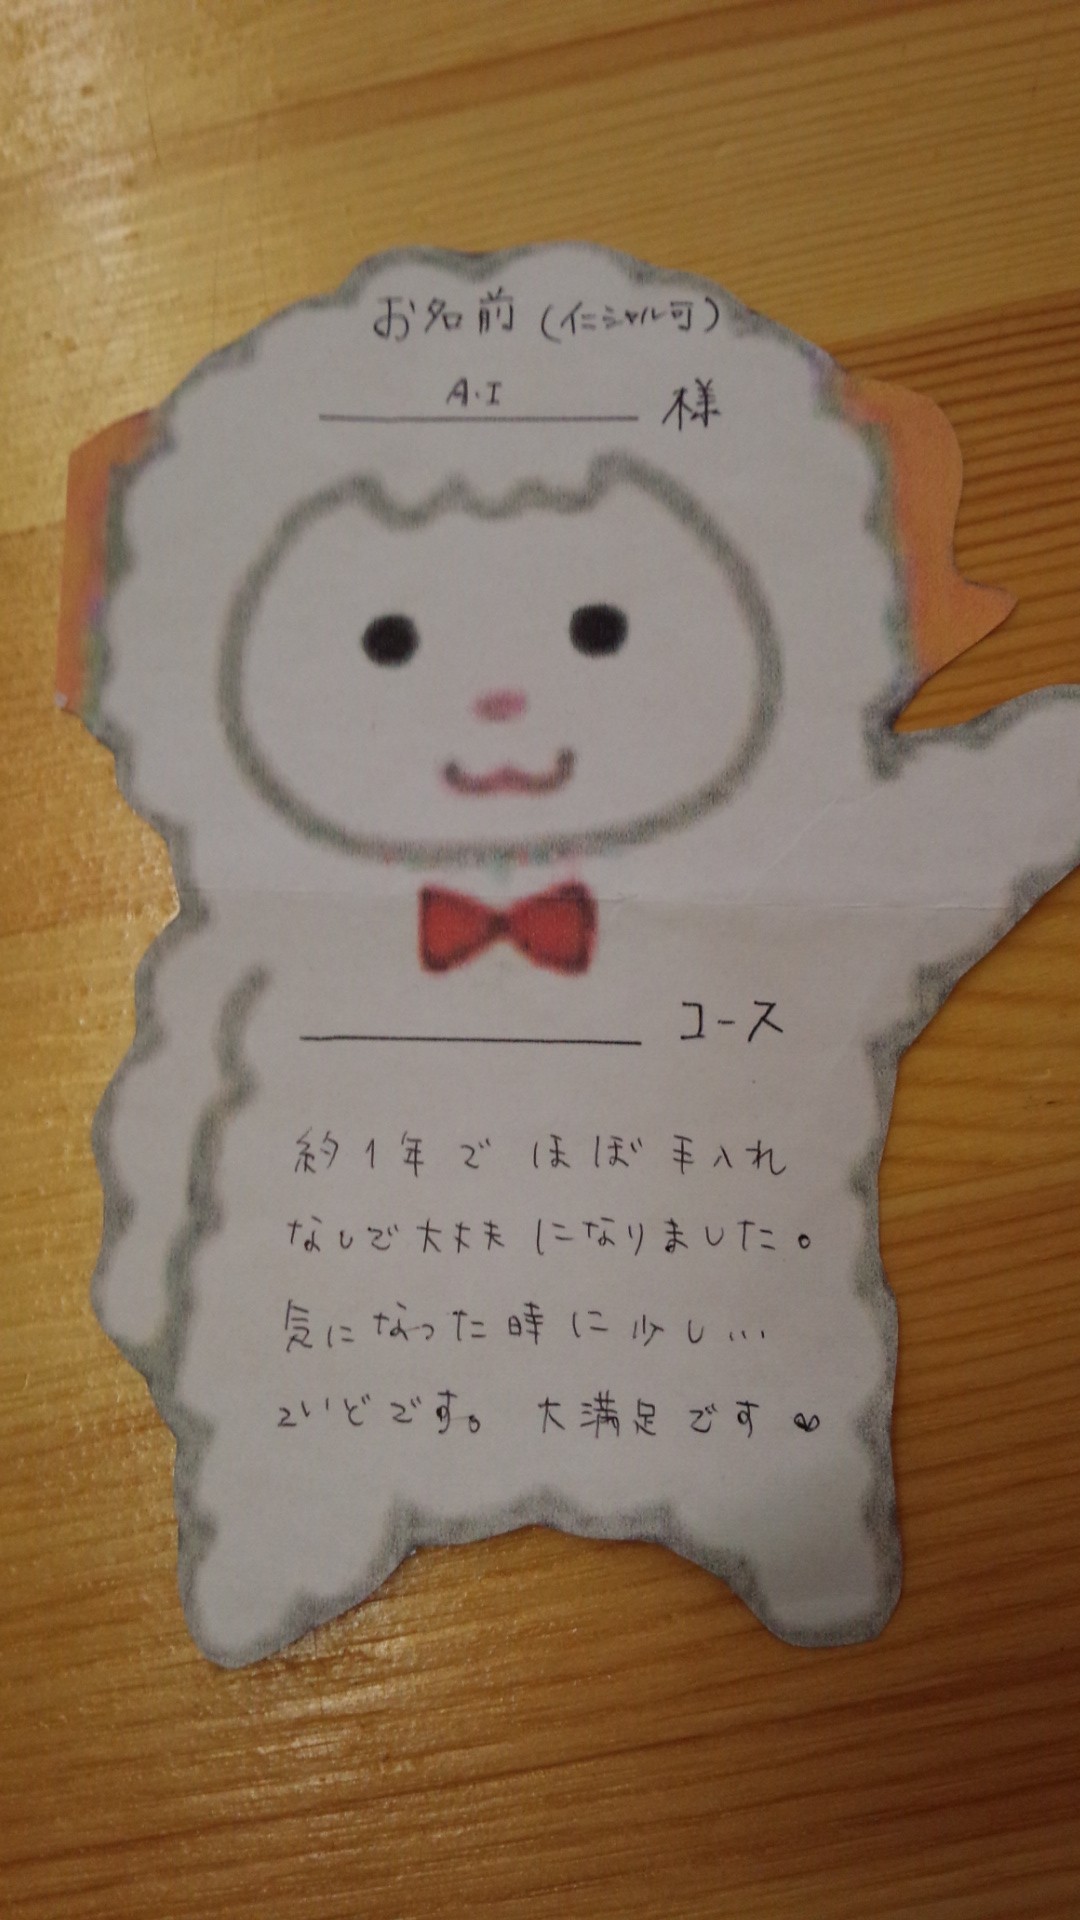 お名前(イニシャル可)
A.I 様
コース
約1年でほぼ手入れ
なしで大丈夫になりました。
気になった時に少し...
ていどです。大満足です